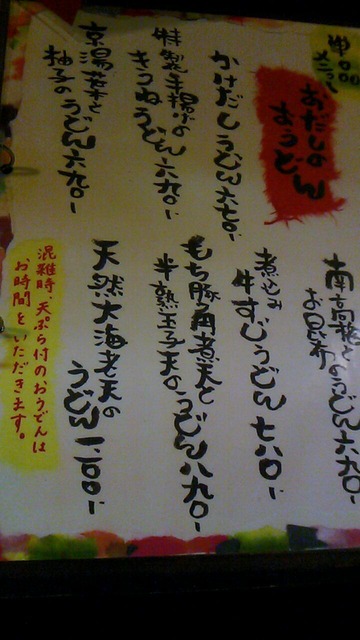 おだしの
おうどん
かけだしうどん 六七〇-
特製手揚げの
きつねうどん 六九〇-
京湯葉と
柚子のうどん 六九〇-
南高梅と
お昆布のうどん 六九〇-
煮込み
牛すじうどん 七八〇-
もち豚角煮天と
半熟玉子天のうどん 八九〇-
天然大海老天の
うどん 一二〇〇-
混雑時、天ぷら付のおうどんは
お時間をいただきます。